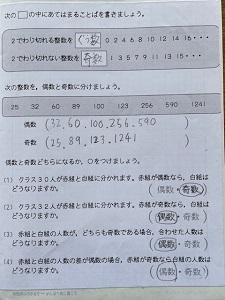 次の□の中にあてはまることばを書きましょう。
2でわり切れる整数を ぐう数 0 2 4 6 8 10 12 14 16・・・
2でわり切れない整数を 奇数 1 3 5 7 9 11 13 15・・・
次の整数を、偶数と奇数に分けましょう。
25 32 60 89 100 123 256 590 1241
偶数 (32,60,100,256,590)
奇数 (25,89,123,1241)
偶数と奇数どちらになるか、○をつけましょう。
(1) クラス30人が赤組と白組に分かれます。赤組が奇数なら、白組は
どうなりますか。 (偶数・奇数)
(2) クラス32人が赤組と白組に分かれます。赤組が偶数なら、白組は
どうなりますか。 (偶数・奇数)
(3) 赤組と白組の人数が、どちらも奇数である場合、合わせた人数は
どうなりますか。 (偶数・奇数)
(4) 赤組と白組の人数の差が偶数の場合、赤組が奇数なら白組の人数は
どうなりますか。 (偶数・奇数)